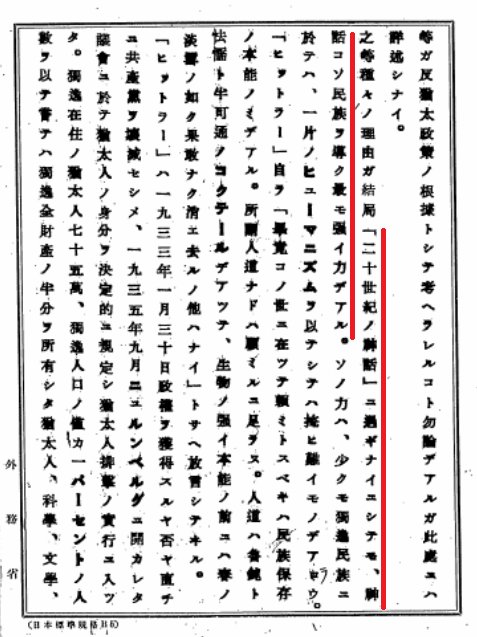 等ガ反猶太政策ノ根據トシテ考ヘラレルコト勿論デアルガ此處ニハ
詳述シナイ。
之等種々ノ理由ガ結局「二十世紀ノ神話」ニ過ギナイニシテモ、神
話コソ民族ヲ導ク最モ强イ力デアル。ソノ力ハ、少クモ獨逸民族ニ
於テハ、一片ノヒューマニズムヲ以テシテハ掩ヒ難イモノデアロウ。
「ヒットラー」自ラ「畢竟コノ世ニ在ツテ頼ミトスベキハ民族保存
ノ本能ノミデアル。所謂人道ナドハ顧ミルニ足ラヌ。人道ハ愚鈍ト
怯懦ト半可通ノコクテールデアツテ、生物ノ强イ本能ノ前ニハ春ノ
淡雪ノ如ク果敢ナク消エ去ルノ他ハナイ」トサヘ放言シテヰル。
「ヒットラー」ハ一九三三年一月三十日政權ヲ獲得スルヤ否ヤ直チ
ニ共產黨ヲ壞滅セシメ、一九三五年九月ニュルンベルグニ開カレタ
議會ニ於テ猶太人ノ身分ヲ決定的ニ規定シ猶太人排擊ノ實行ニ入ツ
タ。獨逸在住ノ猶太人七十五萬、獨逸人口ノ僅カ一パーセントノ人
數ヲ以テ嘗テハ獨逸全財產ノ半分ヲ所有シタ猶太人、科學、文學、
外務省
(日本標準規格B6)